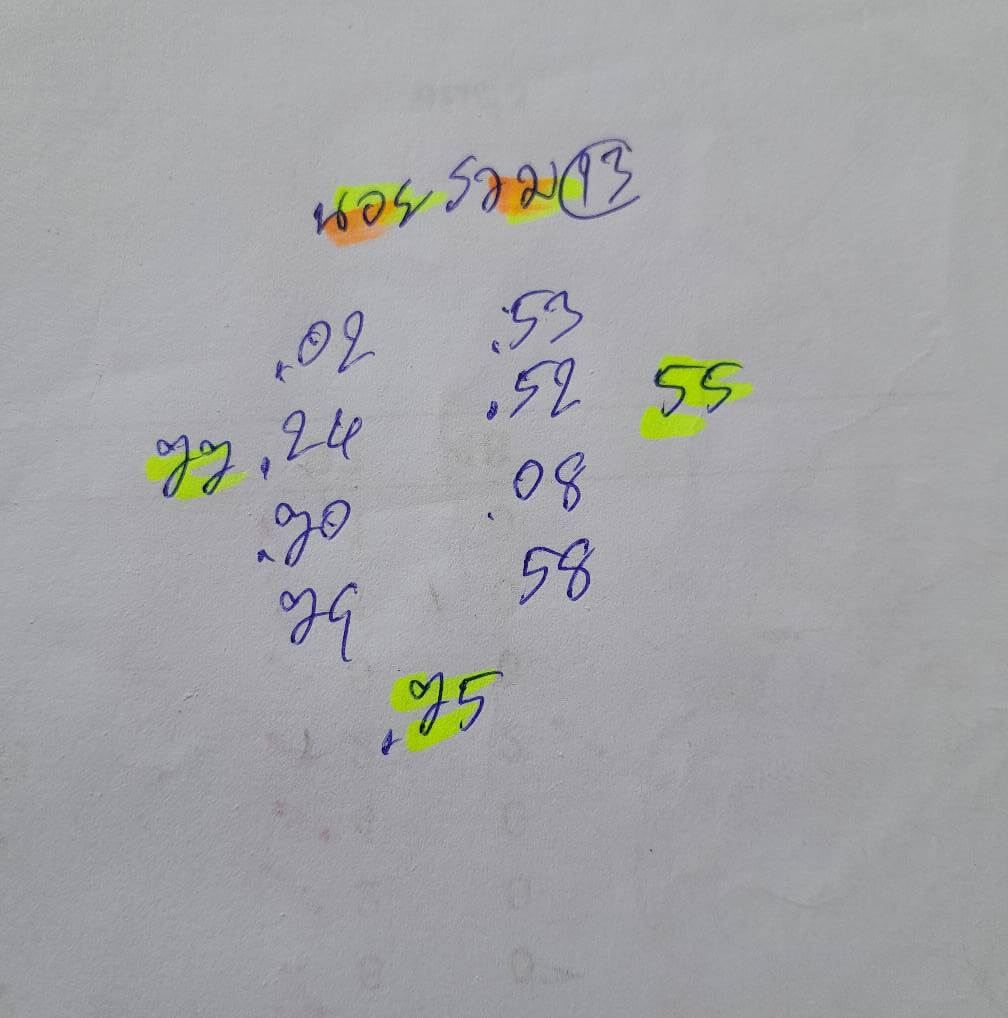 นอย รวม 13
.02 .53
.52 55
77 .24
.70 .08
79 58
.75